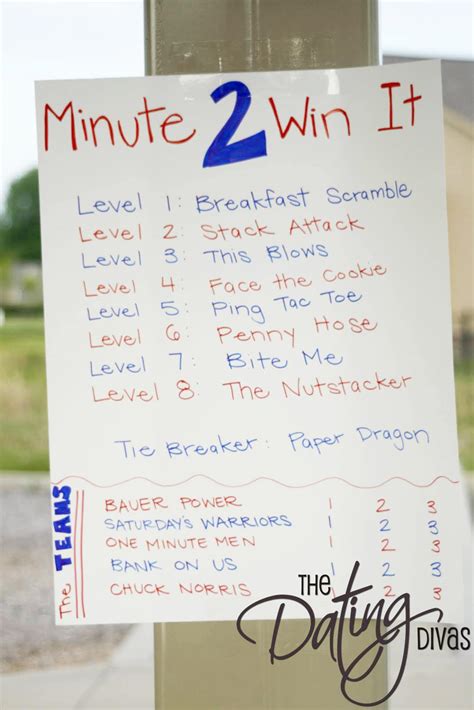 Minute 2 Win It
Level 1: Breakfast Scramble
Level 2: Stack Attack
Level 3: This Blows
Level 4: Face the Cookie
Level 5: Ping Tac Toe
Level 6: Penny Hose
Level 7: Bite Me
Level 8: The Nutstacker
Tie Breaker: Paper Dragon
The TEAMS
BAUER POWER 1 2 3
SATURDAY'S WARRIORS 1 2 3
ONE MINUTE MEN 1 2 3
BANK ON US 1 2 3
CHUCK NORRIS 1 2 3
THE
Dating
DIVAS